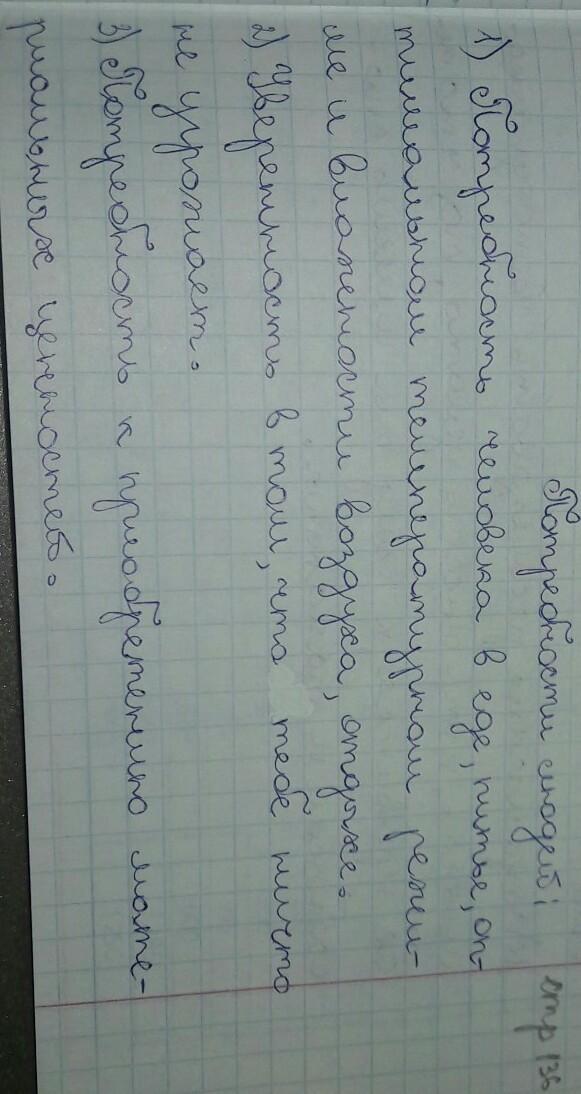 Потребности людей:
стр 136
1) Потребность человека в еде, питье, оп-
тимальном температурном режи-
ме и влажности воздуха, отдыхе.
2) Уверенность в том, что тебе ничто
не угрожает.
3) Потребность к приобретению мате-
риальных ценностей.